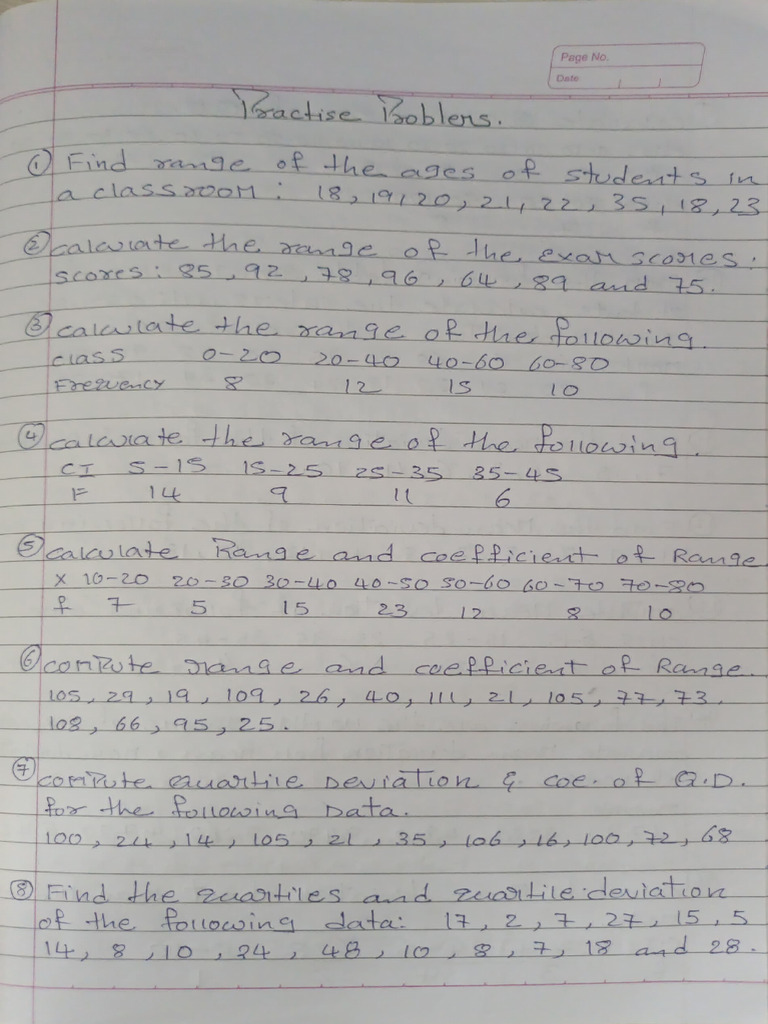 Page No.
Date
Practise Problems.
① Find range of the ages of students in
a classroom : 18, 19, 20, 21, 22, 35, 18, 23
② calculate the range of the exam scores :
scores : 85, 92, 78, 96, 64, 89 and 75.
③ calculate the range of the following.
class 0-20 20-40 40-60 60-80
Frequency 8 12 15 10
④ calculate the range of the following.
CI 5-15 15-25 25-35 35-45
F 14 9 11 6
⑤ calculate Range and coefficient of Range
X 10-20 20-30 30-40 40-50 50-60 60-70 70-80
f 7 5 15 23 12 8 10
⑥ compute range and coefficient of Range.
105, 29, 19, 109, 26, 40, 111, 21, 105, 77, 73,
108, 66, 95, 25.
⑦ compute quartile Deviation & coe. of Q.D.
for the following Data.
100, 24, 14, 105, 21, 35, 106, 16, 100, 72, 68
⑧ Find the quartiles and quartile deviation
of the following data: 17, 2, 7, 27, 15, 5
14, 8, 10, 24, 48, 10, 8, 7, 18 and 28.